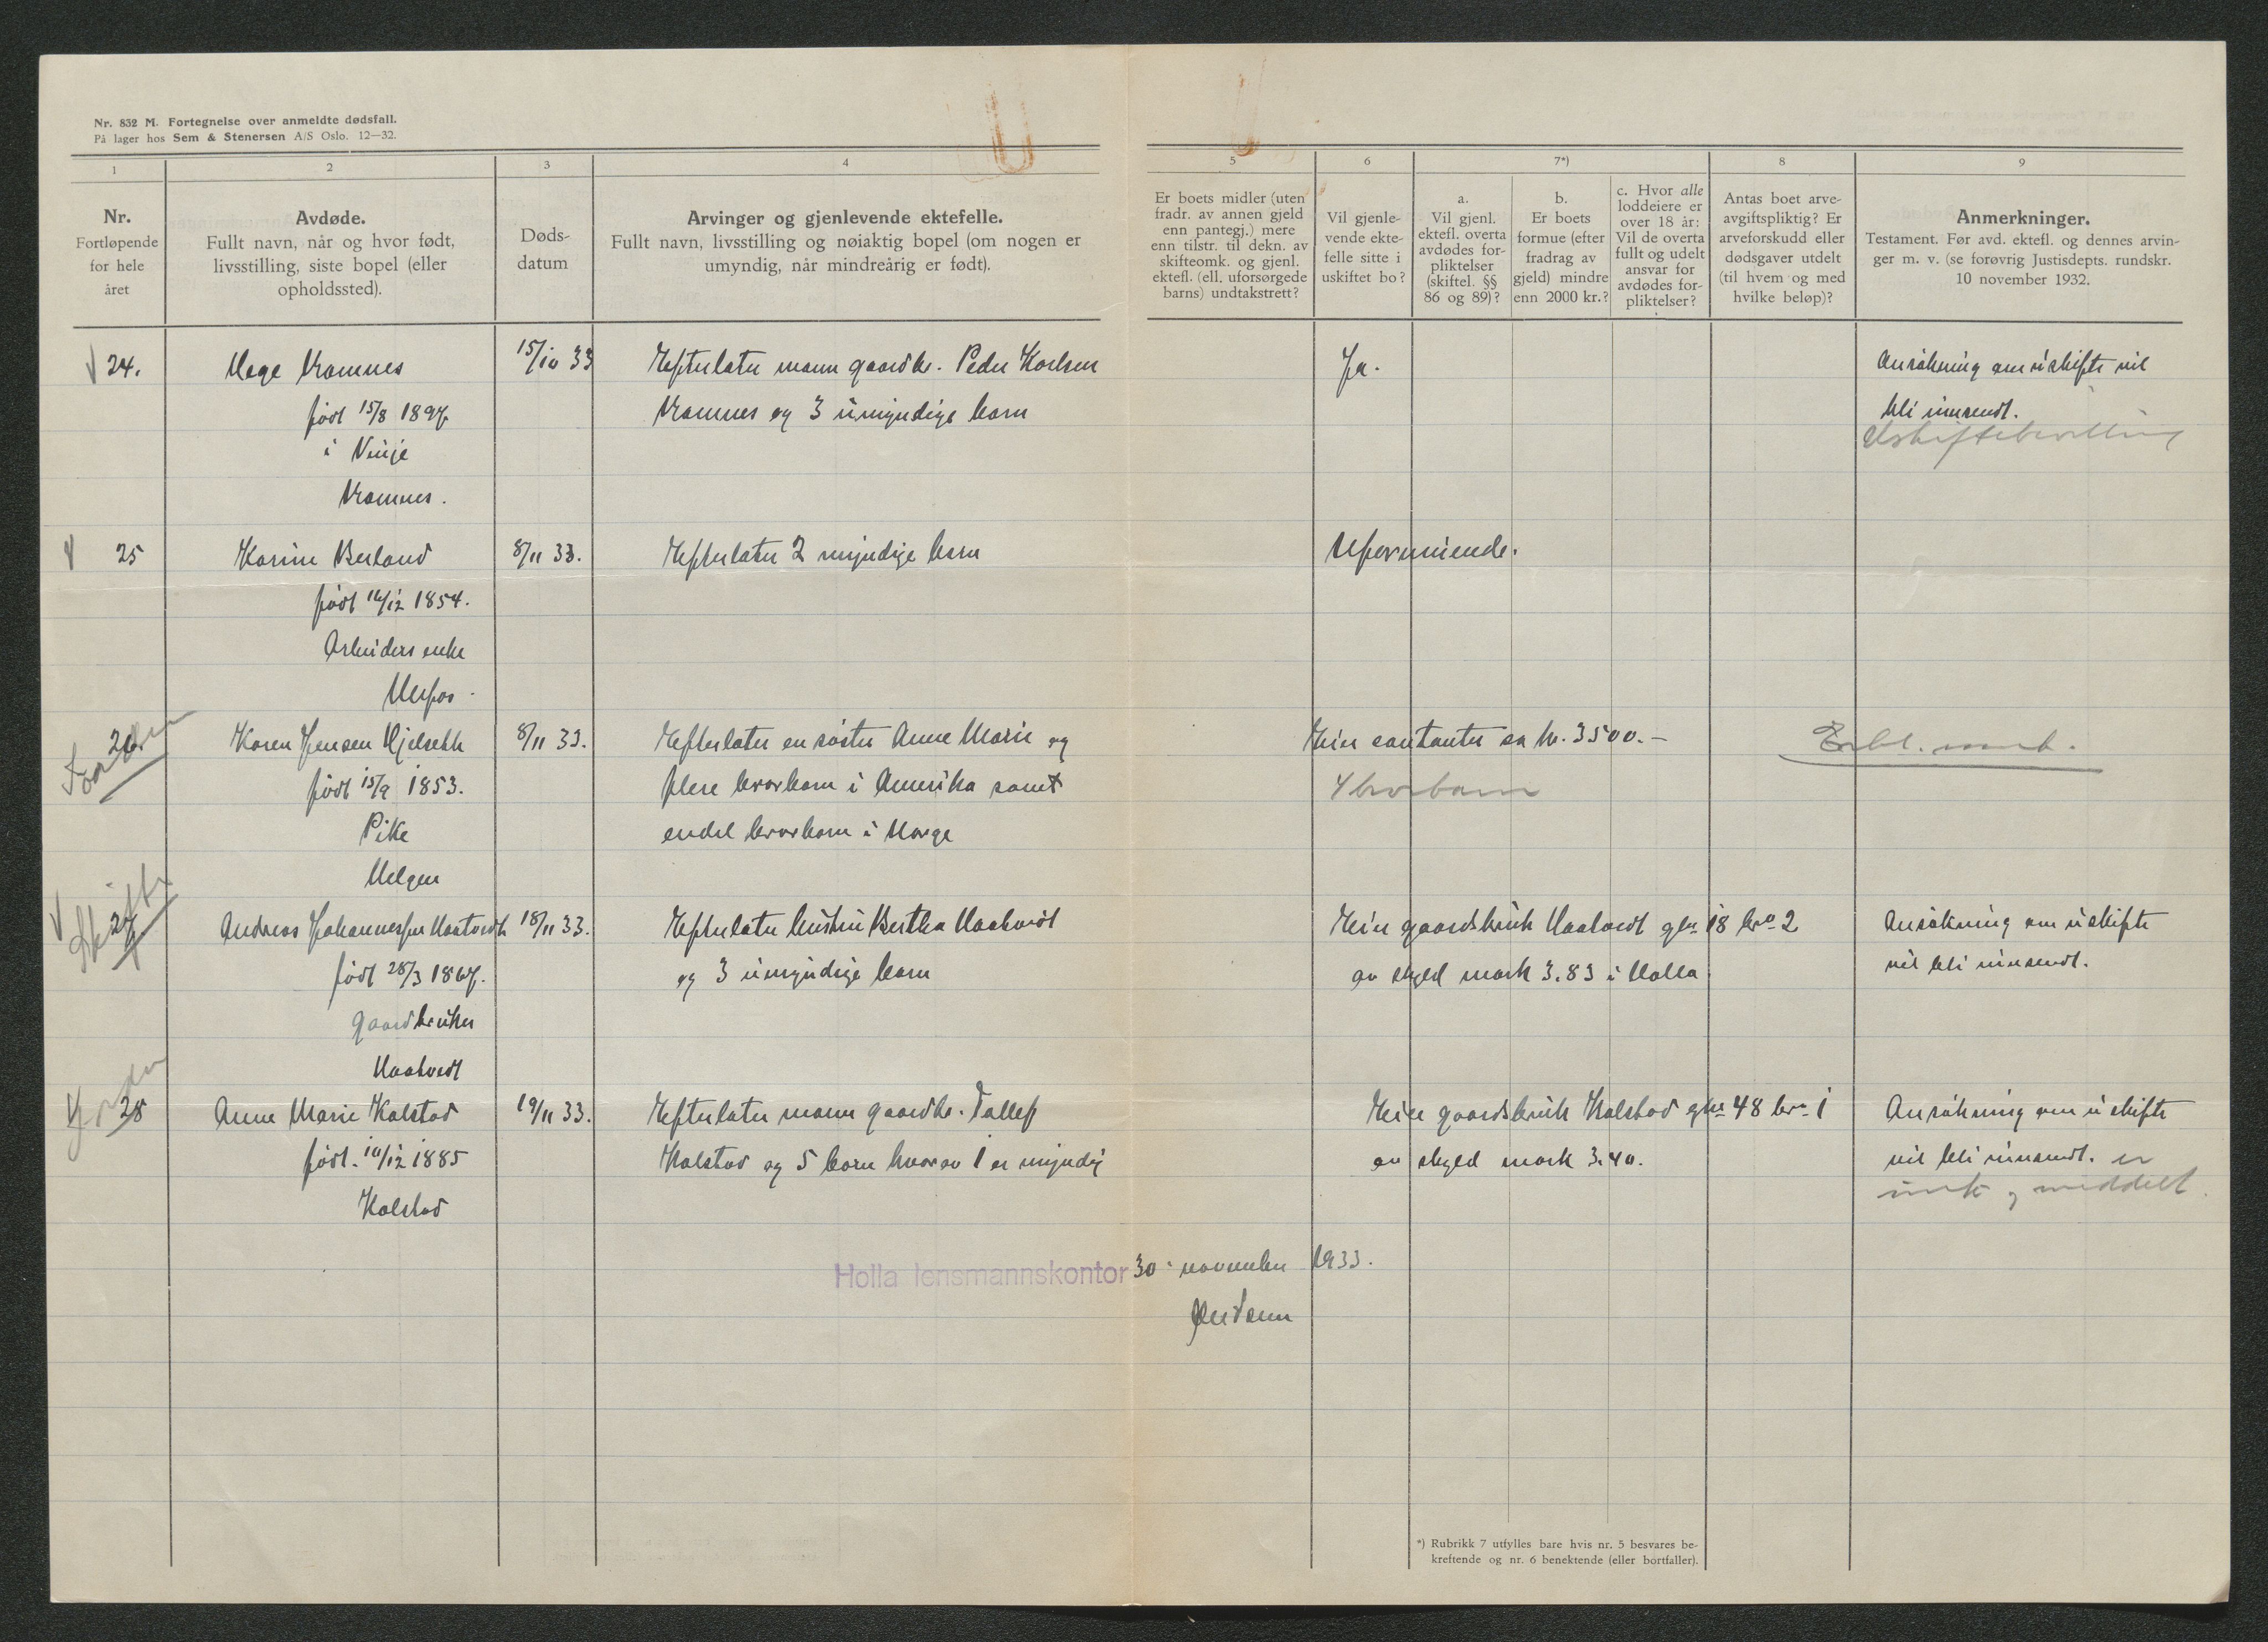 Nr. 832 M. Fortegnelse over anmeldte dødsfall.
På lager hos Sem & Stenersen A/S Oslo. 12—32.
1
2
3
4
5
6
7*)
8
9
Nr.
Fortløpende
for hele
året
Avdøde.
Fullt navn, når og hvor født,
livsstilling, siste bopel (eller
opholdssted).
Døds-
datum
Arvinger og gjenlevende ektefelle.
Fullt navn, livsstilling og nøiaktig bopel (om nogen er
umyndig, når mindreårig er født).
Er boets midler (uten
fradr. av annen gjeld
enn pantegj.) mere
enn tilstr. til dekn. av
skifteomk. og gjenl.
ektefl. (ell. uforsørgede
barns) undtakstrett?
Vil gjenle-
vende ekte-
felle sitte i
uskiftet bo?
a.
Vil gjenl.
ektefl. overta
avdødes for-
pliktelser
(skiftel. §§
86 og 89)?
b.
Er boets
formue (efter
fradrag av
gjeld) mindre
enn 2000 kr.?
c. Hvor alle
loddeiere er
over 18 år:
Vil de overta
fullt og udelt
ansvar for
avdødes for-
pliktelser?
Antas boet arve-
avgiftspliktig? Er
arveforskudd eller
dødsgaver utdelt
(til hvem og med
hvilke beløp)?
Anmerkninger.
Testament. Før avd. ektefl. og dennes arvin-
ger m. v. (se forøvrig Justisdepts. rundskr.
10 november 1932.
24.
født 15/8 1897
i Vinje
15/10 33
Efterlater mann gaardbr. Peder Karlsen
og 3 umyndige barn
Ja.
Ansøkning om uskifte vil
bli innsendt.
Uskiftebevilling
25
Karine Berland
født 1854.
Arbeiders enke
Ulefos.
8/11 33.
Efterlater 2 myndige barn
Uformuende.
26
Karen Jensen
født 15/9 1853.
Pike
Helgen
8/11 33.
Efterlater en søster Anne Marie og
flere brorbarn i Amerika samt
endel brorbarn i Norge
Eier contanter ca kr. 3500.-
4 brorbarn
Skifte
27
Andreas Johannessen Haatvedt
født 28/3 1867.
gaardbruker
Haatvedt
18/11 33.
Efterlater hustru Bertha Haatvedt
og 3 umyndige barn
Eier gaardsbruk Haatvedt gno 18 bro 2
av skyld mark 3.83 i Holla
Ansøkning om uskifte
vil bli innsendt.
28
Anne Marie Kalstad
født. 10/12 1885
Kalstad
19/11 33.
Efterlater mann gaardbr. Tallef
Kalstad og 5 barn hvorav 1 er myndig
Eier gaardsbruk Kalstad gno 48 bro 1
av skyld mark 3.40.
Ansøkning om uskifte
vil bli innsendt. er
og meddelt
Holla lensmannskontor 30. november 1933.
*) Rubrikk 7 utfylles bare hvis nr. 5 besvares be-
kreftende og nr. 6 benektende (eller bortfaller).